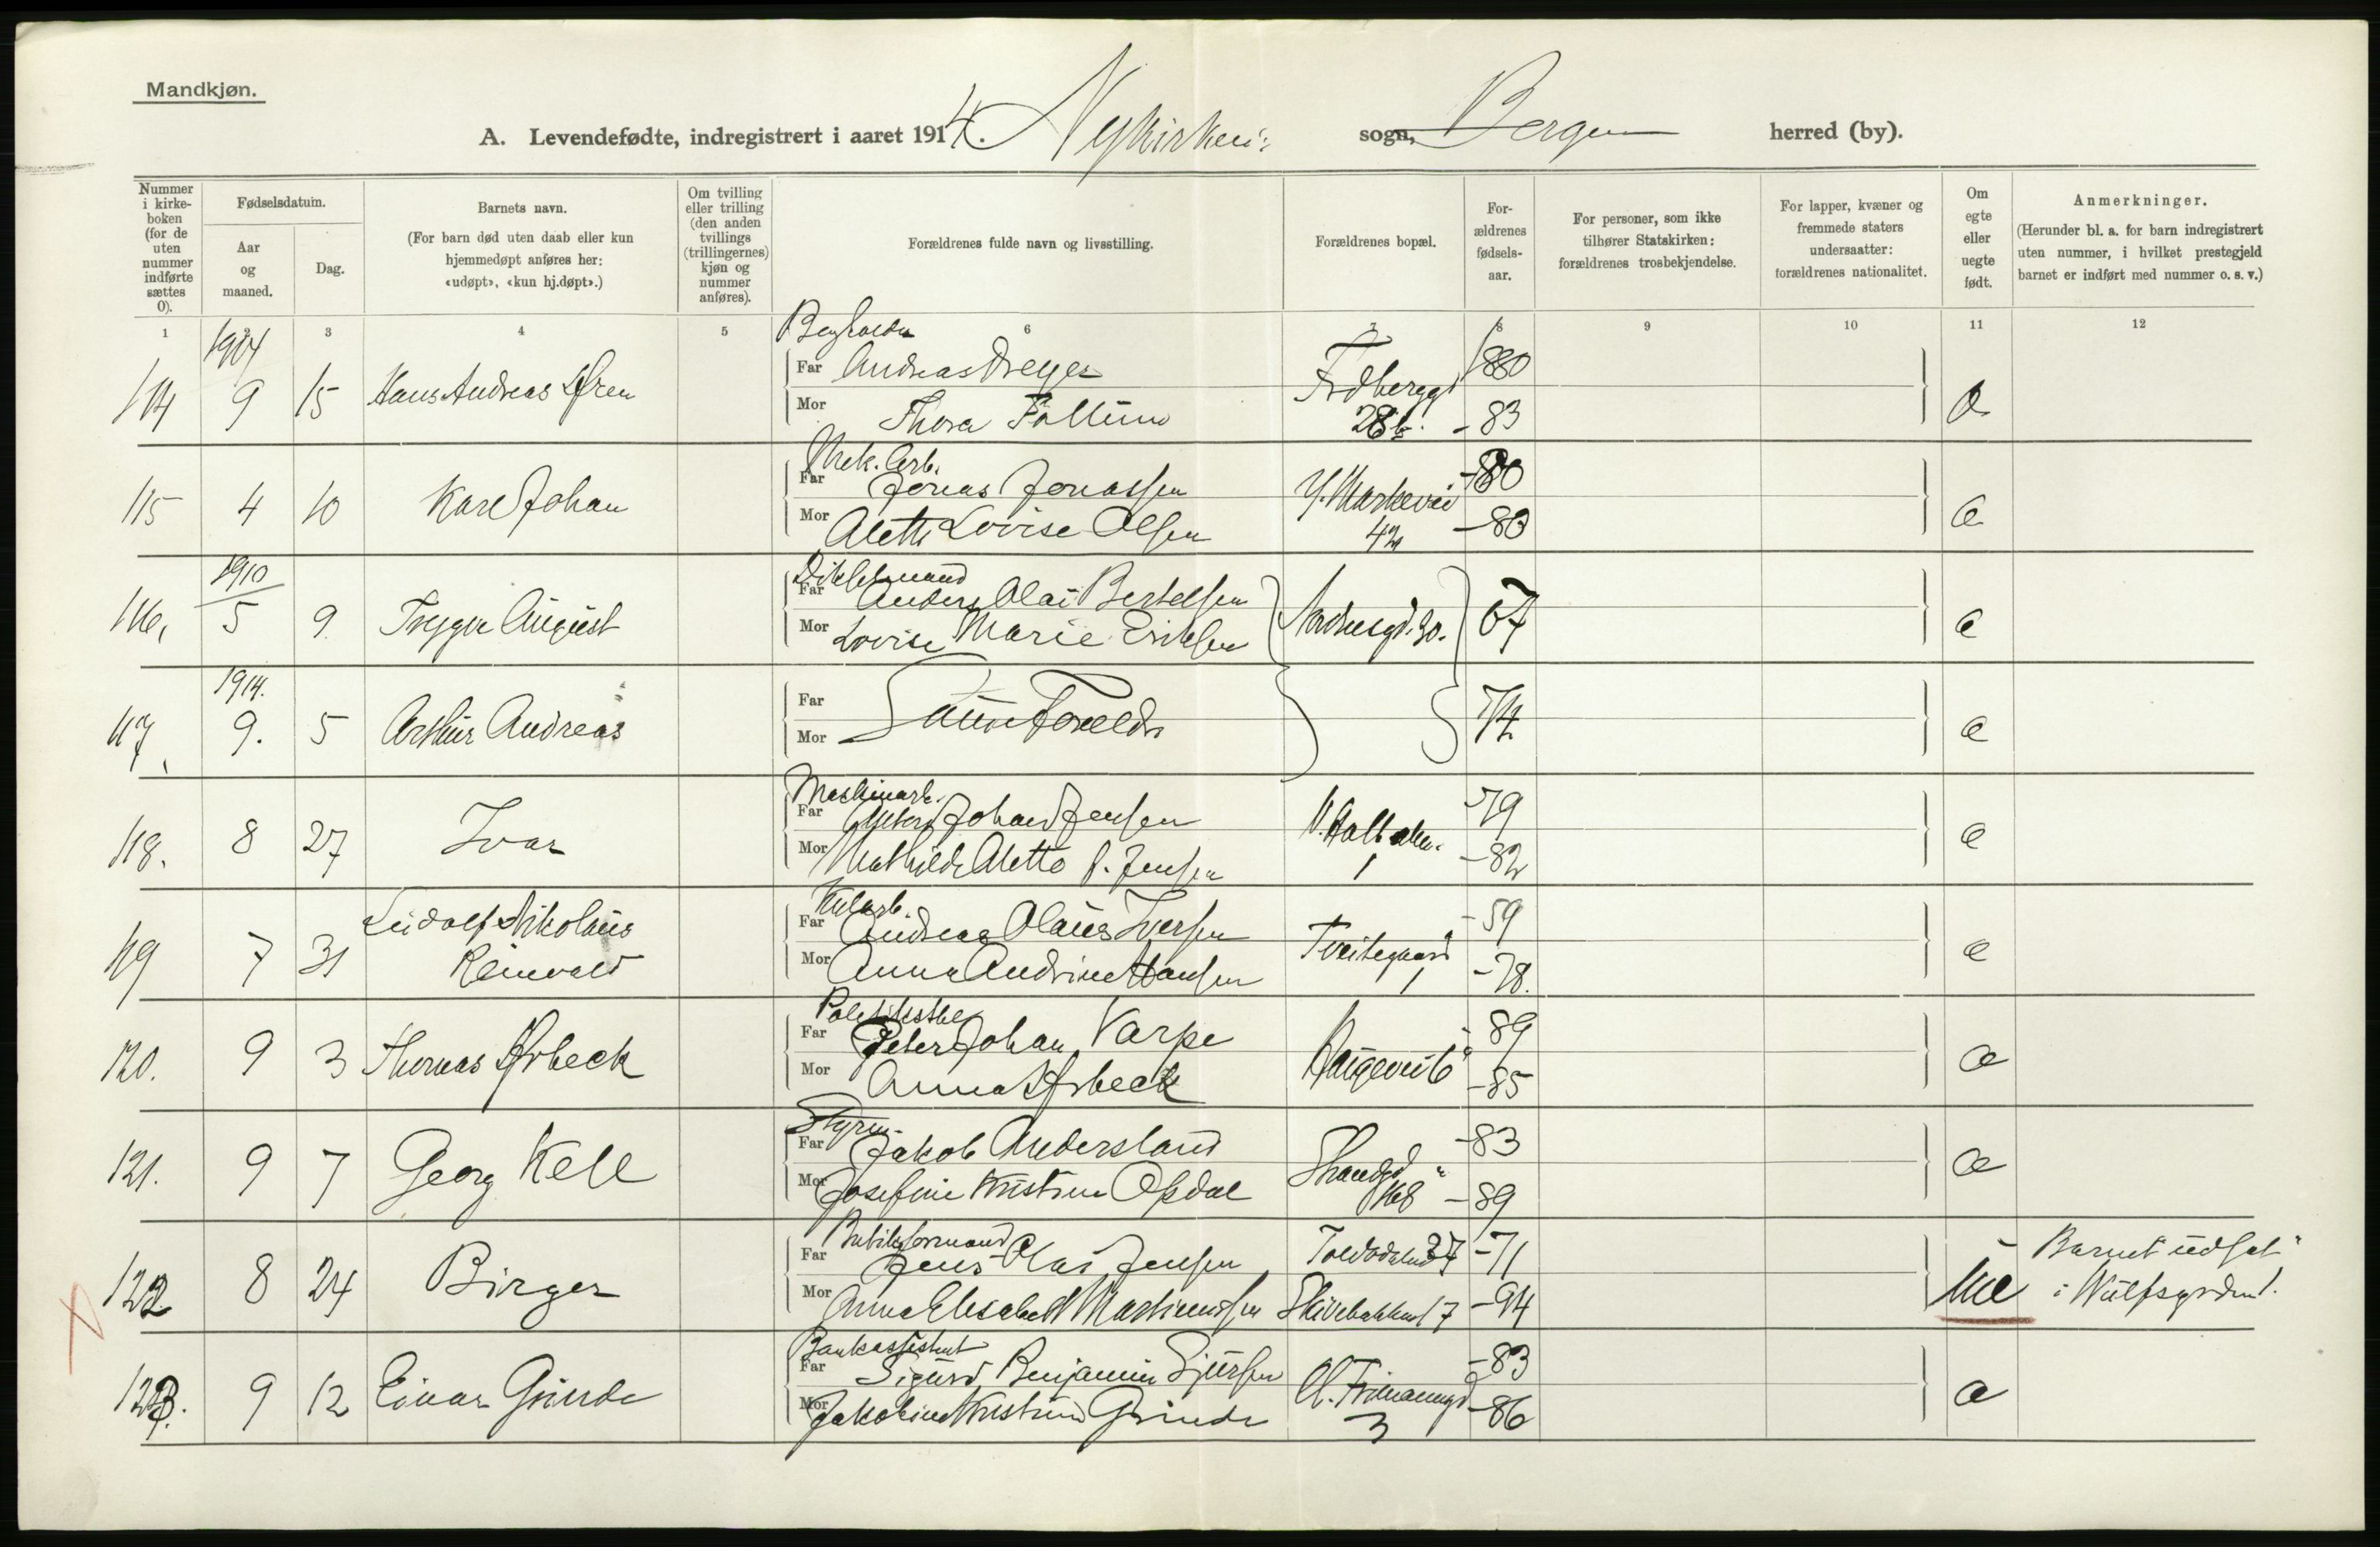 Mandkjøn.
A. Levendefødte, indregistrert i aaret 1914. Nykirken sogn, Bergen herred (by).
Nummer i kirkeboken (for de uten nummer indførte sættes 0).
Fødselsdatum.
Aar og maaned.
Dag.
Barnets navn.
(For barn død uten daab eller kun hjemmedøpt anføres her: «udøpt», «kun hj.døpt».)
Om tvilling eller trilling (den anden tvillings (trillingernes) kjøn og nummer anføres).
Forældrenes fulde navn og livsstilling.
Forældrenes bopæl.
Forældrenes fødselsaar.
For personer, som ikke tilhører Statskirken: forældrenes trosbekjendelse.
For lapper, kvæner og fremmede staters undersaatter: forældrenes nationalitet.
Om egte eller uegte født.
Anmerkninger.
(Herunder bl. a. for barn indregistrert uten nummer, i hvilket prestegjeld barnet er indført med nummer o. s. v.)
1 2 3 4 5 6 7 8 9 10 11 12
1914
114 9 15 Hans Andreas
Far Andreas Dreyer 1880
Mor Thora 28b. -83
Mek. Arb.
115 4 10 Karl Johan
Far Jonas Jonassen Y. Markevei -80
Mor Aletti Lovise Olsen 42 -80 e
1910
116. 5 9. Trygve August
Far Anders Olai Bertelsen
Mor Lovise Marie Eriksen 30. 67 e
1914.
117. 9. 5 Arthur Andreas
Far
Mor Samme Foreldre 74 e
118. 8 27 Ivar
Maskinarb.
Far Johan Jensen -79
Mor Mathilde Alette J. Jensen 1 -82 e
119 7 31 Ludolf Nikolaus
Reinvald
Far Andreas Olaus Iversen Tveitegaard -59
Mor Anna Andrine Hansen 1 -78. e
120. 9 3 Thomas Arbeck
Far Peter Johan Varpe Haugevei 6 -89
Mor Anna Arbeck -85 e
Styrm.
121. 9 7 Georg Kell
Far Jakob Andersland Strandgd -83
Mor Josefine Kristine Opdal 168 -89 e
122. 8 24 Birger
Far Jens Olai Jensen 37 -71
Mor Anna Elisabeth Martinussen Skivebakken 17 -94 ue
Barnet udsat
i Wulfsgården 1.
Bankassistent
123. 9 12 Einar Grinde
Far Sigurd Benjamin Sjursen Cl. Frimannsgd -83
Mor Jakobine Kristine Grinde 3 -86 e